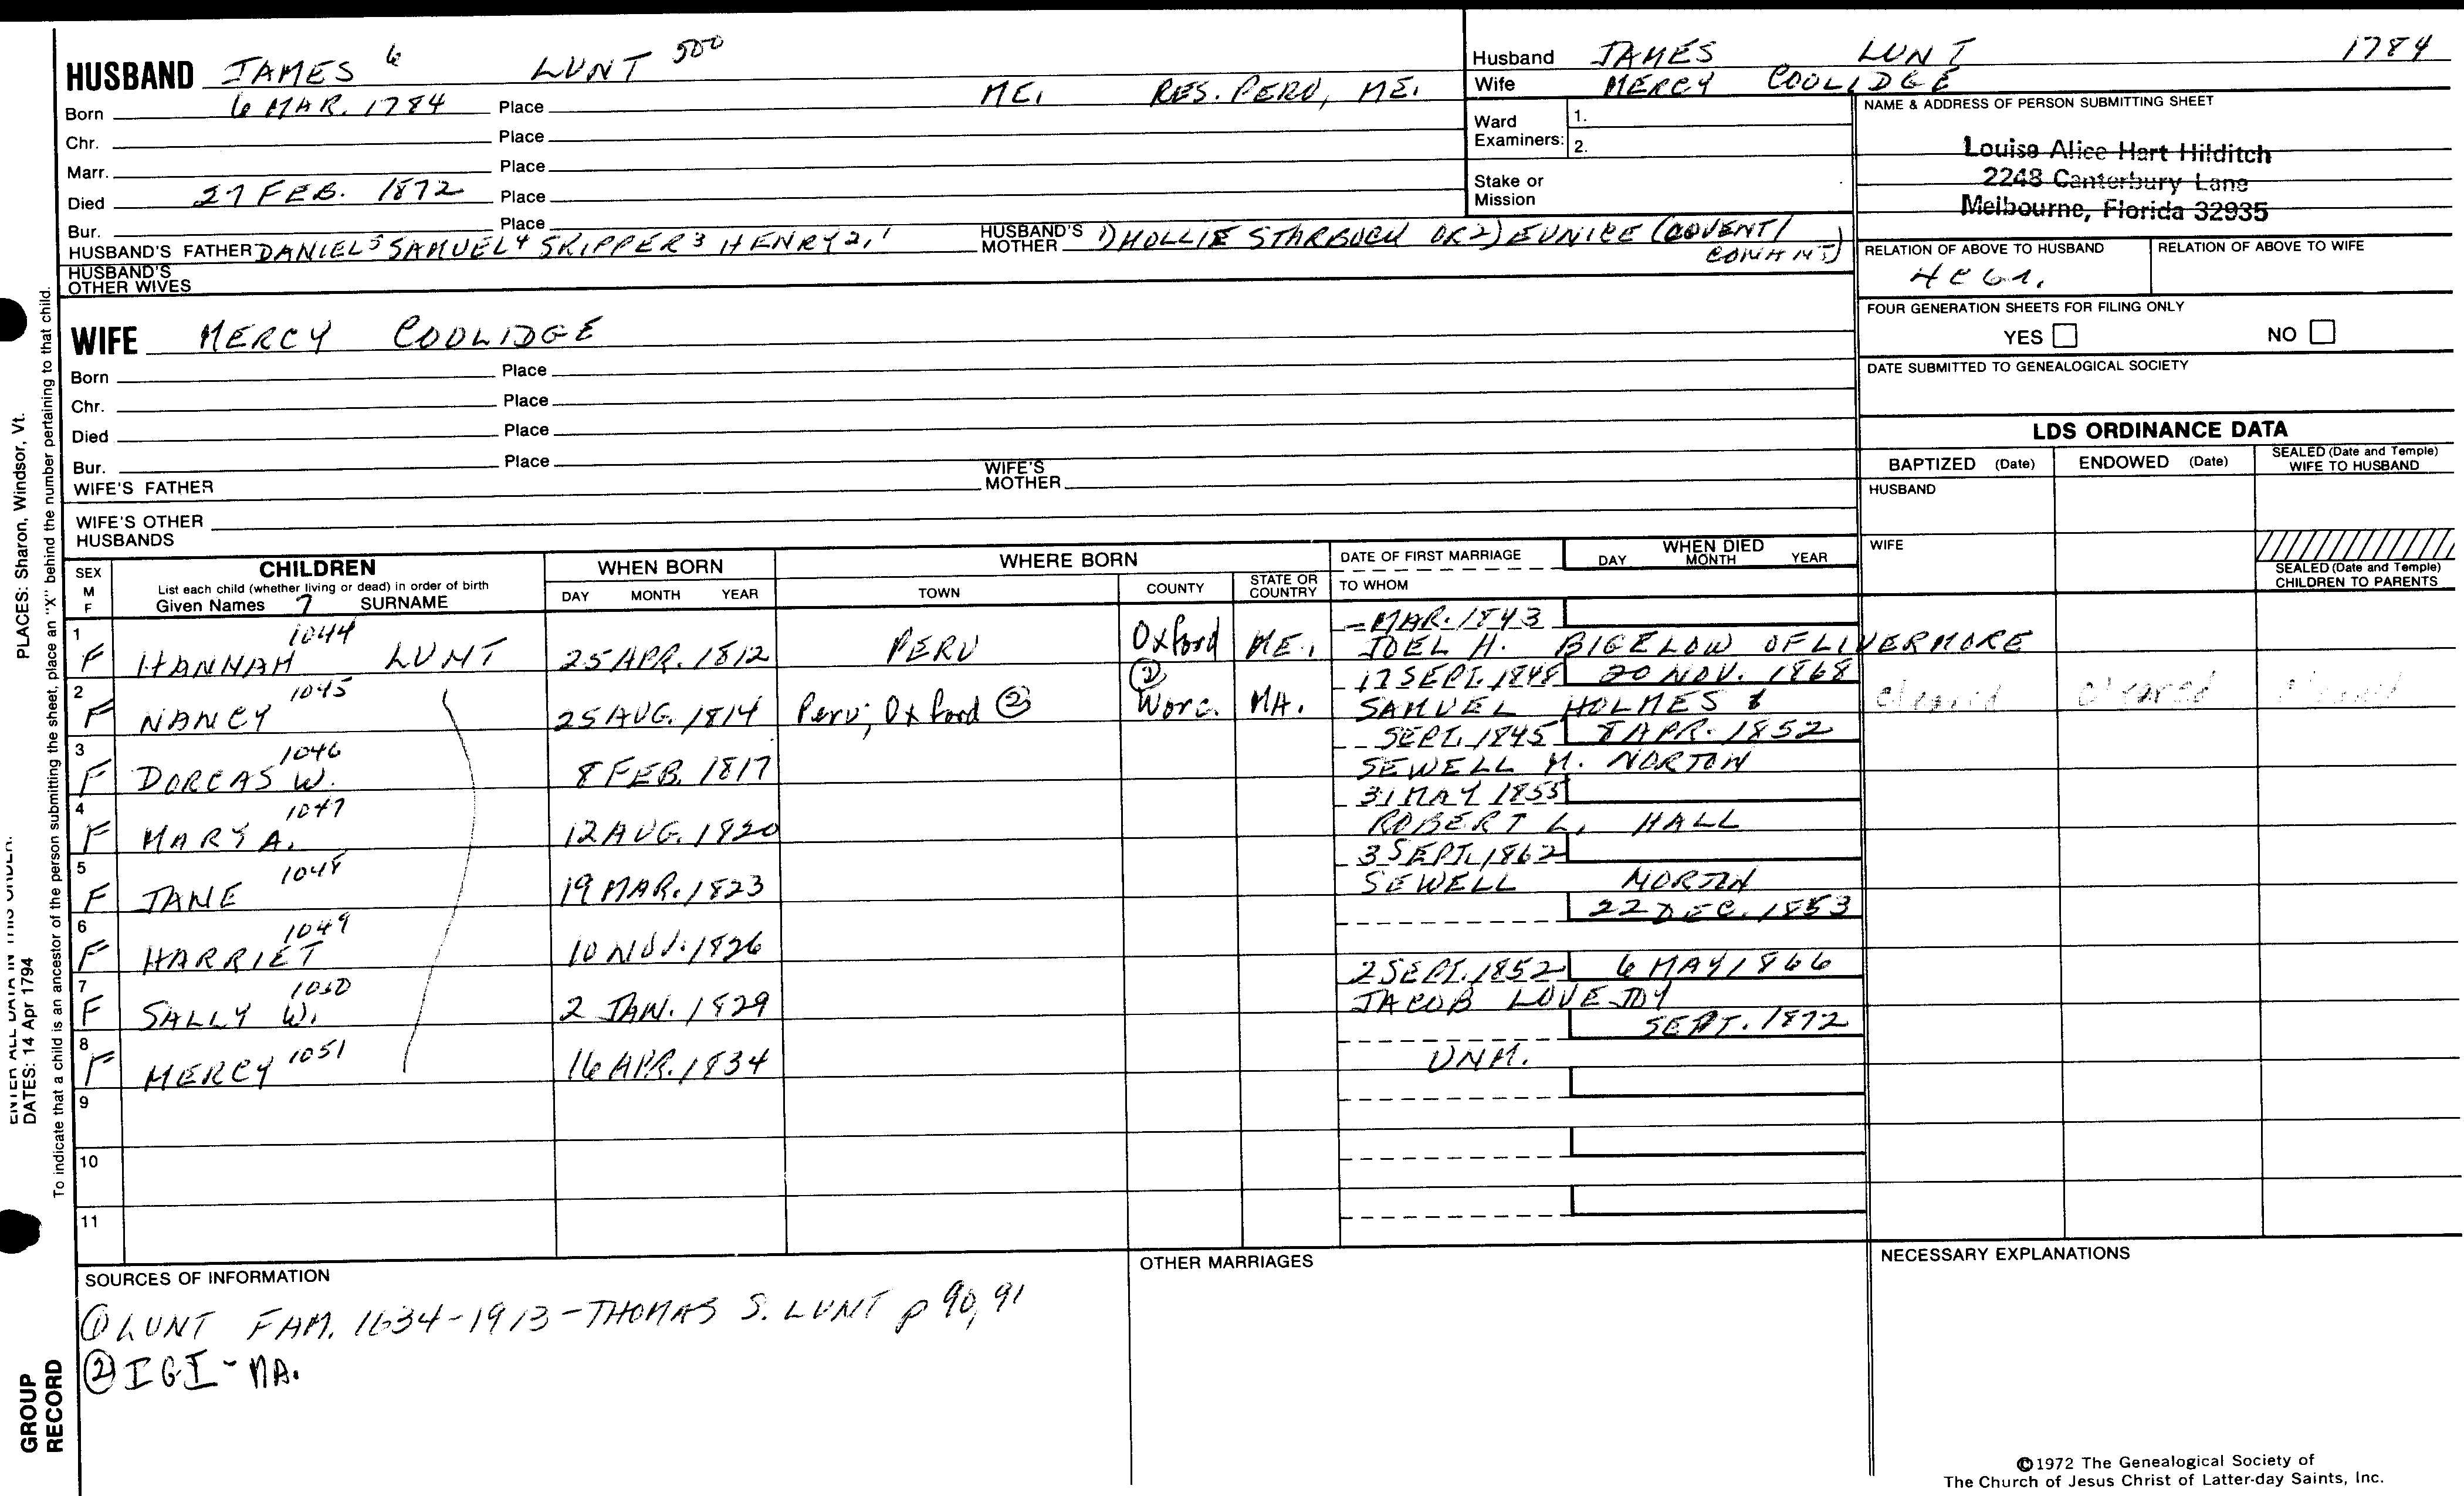 HUSBAND JAMES 6 LUNT 500
Born 6 MAR. 1784 Place ME. RES. PERU, ME.
Chr. Place
Marr. Place
Died 27 FEB. 1872 Place
Bur. Place
HUSBAND'S FATHER DANIEL 5 SAMUEL 4 SKIPPER 3 HENRY 2, 1 HUSBAND'S MOTHER 1) HOLLIE STARBUCK OR 2) EUNICE (COVENT/
HUSBAND'S OTHER WIVES
Husband JAMES LUNT 1784
Wife MERCY COOLIDGE
Ward Examiners: 1.
2.
Stake or Mission
NAME & ADDRESS OF PERSON SUBMITTING SHEET
Louise Alice Hart Hilditch
2248 Canterbury Lane
Melbourne, Florida 32935
RELATION OF ABOVE TO HUSBAND RELATION OF ABOVE TO WIFE
FOUR GENERATION SHEETS FOR FILING ONLY
YES NO
DATE SUBMITTED TO GENEALOGICAL SOCIETY
WIFE MERCY COOLIDGE
Born Place
Chr. Place
Died Place
Bur. Place
WIFE'S FATHER WIFE'S MOTHER
WIFE'S OTHER HUSBANDS
LDS ORDINANCE DATA
BAPTIZED (Date) ENDOWED (Date) SEALED (Date and Temple) WIFE TO HUSBAND
HUSBAND
WIFE
SEALED (Date and Temple) CHILDREN TO PARENTS
SEX M F
CHILDREN
List each child (whether living or dead) in order of birth
Given Names 7 SURNAME
WHEN BORN
DAY MONTH YEAR
WHERE BORN
TOWN COUNTY STATE OR COUNTRY
DATE OF FIRST MARRIAGE
TO WHOM
WHEN DIED
DAY MONTH YEAR
1 F HANNAH 1044 LUNT 25 APR. 1812 PERU Oxford ME. - MAR. 1843
JOEL H. BIGELOW OF LIVERMORE
2 F NANCY 1045 25 AUG. 1814 Peru; Oxford ② ② Worc. MA. 17 SEPT. 1848 20 NOV. 1868
SAMUEL HOLMES cleared cleared cleared
3 F DORCAS W. 1046 8 FEB. 1817 SEPT. 1845 8 APR. 1852
SEWELL M. NORTON
4 F MARY A. 1047 12 AUG. 1820 31 MAY 1855
ROBERT L. HALL
5 F JANE 1048 19 MAR. 1823 3 SEPT. 1862
SEWELL NORTON
6 F HARRIET 1049 10 NOV. 1826 22 DEC. 1853
7 F SALLY W. 1050 2 JAN. 1829 2 SEPT. 1852 6 MAY 1866
JACOB LOVEJOY
8 F MERCY 1051 16 APR. 1834 SEPT. 1872
UNM.
9
10
11
SOURCES OF INFORMATION
① LUNT FAM. 1634-1913 - THOMAS S. LUNT p 90, 91
② IGI - MA.
OTHER MARRIAGES
NECESSARY EXPLANATIONS
©1972 The Genealogical Society of
The Church of Jesus Christ of Latter-day Saints, Inc.
PLACES: Sharon, Windsor, Vt.
ENTER ALL DATA IN THIS ORDER.
DATES: 14 Apr 1794
To indicate that a child is an ancestor of the person submitting the sheet, place an "X" behind the number pertaining to that child.
GROUP
RECORD